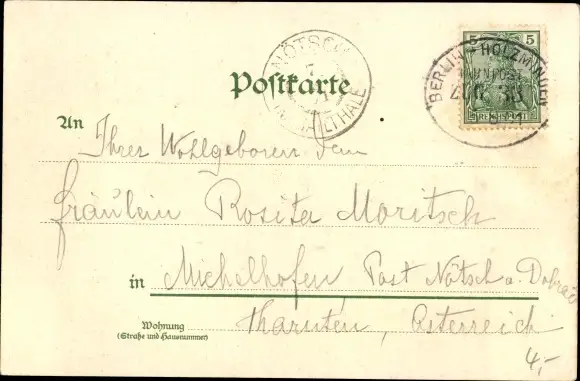 5 5
BERLIN - HOLZMINDEN
BAHNPOST
ZUG 33
REICHSPOST
NÖTSCH
7
Postkarte
An
Ihrer Wohlgeboren dem
Fräulein Rosita Moritsch
in Michelhofen, Post Nötsch a. Dobrač
Wohnung
(Straße und Hausnummer)
Kärnten, Österreich
4,-